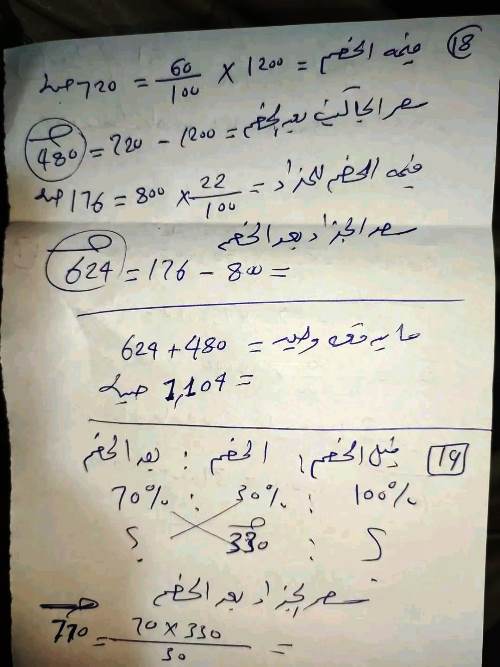 (18) قيمه الخصم = 1200 × 60/100 = 720 جنيه
سعر الجاكيت بعد الخصم = 1200 - 720 = 480 جـ
قيمه الخصم للحذاء = 22/100 × 800 = 176 جنيه
سعر الحذاء بعد الخصم
= 800 - 176 = 624 جـ
ما يدفعه وحيد = 480 + 624
= 1,104 جنيه
19 قبل الخصم : الخصم : بعد الخصم
100% : 30% : 70%
؟ : 330 جـ : ؟
سعر الحذاء بعد الخصم
= 70 × 330 / 30 = 770 جـ